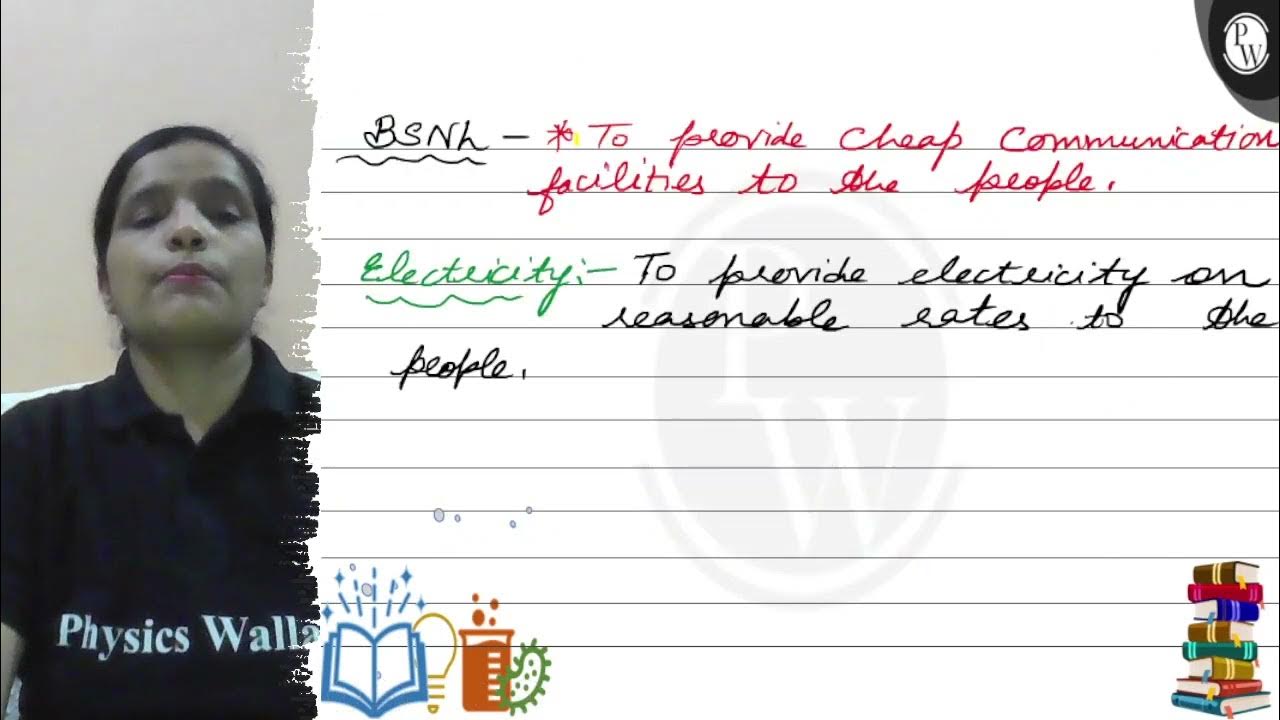 BSNL - * To provide cheap communication
facilities to the people.
Electricity:- To provide electricity on
reasonable rates to the
people.
PW
PW
Physics Walla